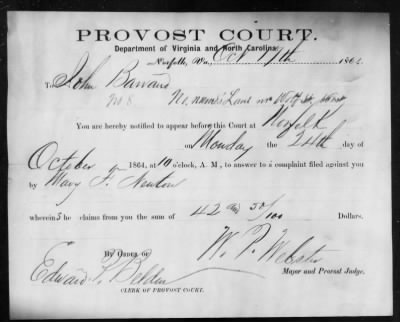 PROVOST COURT.
Department of Virginia and North Carolina.
Norfolk, Va., Oct 17th 1864.
To John
No 8 No name's Lane nr
You are hereby notified to appear before this Court at Norfolk
on Monday the 24th day of
October 1864, at 10 o'clock, A. M., to answer to a complaint filed against you
by Mary F. Newton
wherein She claims from you the sum of 42 and 50/100 Dollars.
By Order of W. P. Webster
Major and Provost Judge.
Edward F. Belden
CLERK OF PROVOST COURT.